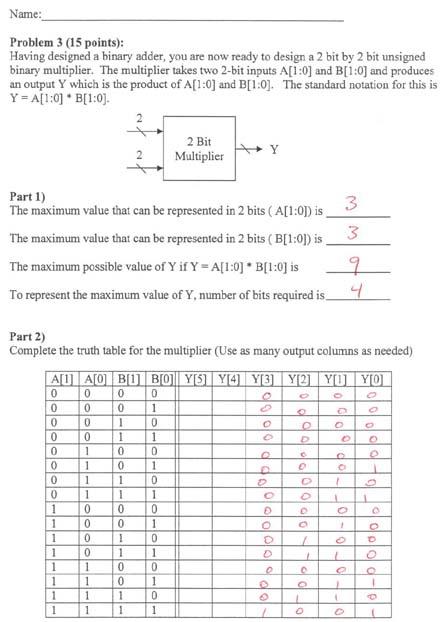 Name:
Problem 3 (15 points):
Having designed a binary adder, you are now ready to design a 2 bit by 2 bit unsigned
binary multiplier. The multiplier takes two 2-bit inputs A[1:0] and B[1:0] and produces
an output Y which is the product of A[1:0] and B[1:0]. The standard notation for this is
Y = A[1:0] * B[1:0].
2
2 Bit
Y
2
Multiplier
Part 1)
The maximum value that can be represented in 2 bits ( A[1:0]) is 3
The maximum value that can be represented in 2 bits ( B[1:0]) is 3
The maximum possible value of Y if Y = A[1:0] * B[1:0] is 9
To represent the maximum value of Y, number of bits required is 4
Part 2)
Complete the truth table for the multiplier (Use as many output columns as needed)
A[1] A[0] B[1] B[0] Y[5] Y[4] Y[3] Y[2] Y[1] Y[0]
0 0 0 0 0 0 0 0
0 0 0 1 0 0 0 0
0 0 1 0 0 0 0 0
0 0 1 1 0 0 0 0
0 1 0 0 0 0 0 0
0 1 0 1 0 0 0 1
0 1 1 0 0 0 1 0
0 1 1 1 0 0 1 1
1 0 0 0 0 0 0 0
1 0 0 1 0 0 1 0
1 0 1 0 0 1 0 0
1 0 1 1 0 1 1 0
1 1 0 0 0 0 0 0
1 1 0 1 0 0 1 1
1 1 1 0 0 1 1 0
1 1 1 1 1 0 0 1